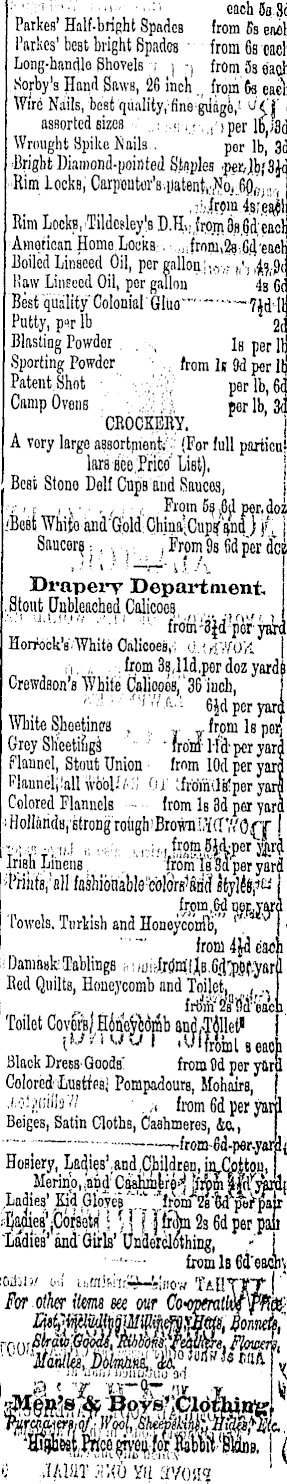 each 5s 3d
Parkes' Half-bright Spades from 5s each
Parkes' best bright Spades from 6s each
Long-handle Shovels from 5s each
Sorby's Hand Saws, 26 inch from 6s each
Wire Nails, best quality, fine guage,
assorted sizes per lb, 3d
Wrought Spike Nails per lb, 3d
Bright Diamond-pointed Staples per lb, 3½d
Rim Locks, Carpenter's patent, No. 60,
from 4s each
Rim Locks, Tildesley's D.H., from 3s 6d each
American Home Locks from 2s 6d each
Boiled Linseed Oil, per gallon 4s 9d
Raw Linseed Oil, per gallon 4s 6d
Best quality Colonial Glue 7½d lb
Putty, per lb 2d
Blasting Powder 1s per lb
Sporting Powder from 1s 9d per lb
Patent Shot per lb, 6d
Camp Ovens per lb, 3d
CROCKERY.
A very large assortment. (For full particu-
lars see Price List).
Best Stone Delf Cups and Sauces,
From 5s 6d per doz
Best White and Gold China Cups and
Saucers From 9s 6d per doz
Drapery Department.
Stout Unbleached Calicoes
from 3½d per yard
Horrock's White Calicoes,
from 3s 11d per doz yards
Crewdson's White Calicoes, 36 inch,
6½d per yard
White Sheetings from 1s per
Grey Sheetings from 11d per yard
Flannel, Stout Union from 10d per yard
Flannel, all wool from 1s per yard
Colored Flannels from 1s 3d per yard
Hollands, strong rough Brown
from 5½d per yard
Irish Linens from 1s 3d per yard
Prints, all fashionable colors and styles,
from 6d per yard
Towels, Turkish and Honeycomb,
from 4½d each
Damask Tablings from 1s 6d per yard
Red Quilts, Honeycomb and Toilet,
from 2s 9d each
Toilet Covers, Honeycomb and Toilet
from 1s each
Black Dress Goods from 9d per yard
Colored Lustres, Pompadours, Mohairs,
from 6d per yard
Beiges, Satin Cloths, Cashmeres, &c.,
from 6d per yard
Hosiery, Ladies' and Children, in Cotton,
Merino, and Cashmere from yard
Ladies' Kid Gloves from 2s 6d per pair
Ladies' Corsets from 2s 6d per pair
Ladies' and Girls' Underclothing,
from 1s 6d each
For other items see our Co-operative Price
List, including Millinery, Hats, Bonnets,
Straw Goods, Ribbons, Feathers, Flowers,
Mantles, Dolmans, &c.
Men's & Boys' Clothing.
Purchasers of Wool, Sheepskins, Hides, Etc.
Highest Price given for Rabbit Skins.